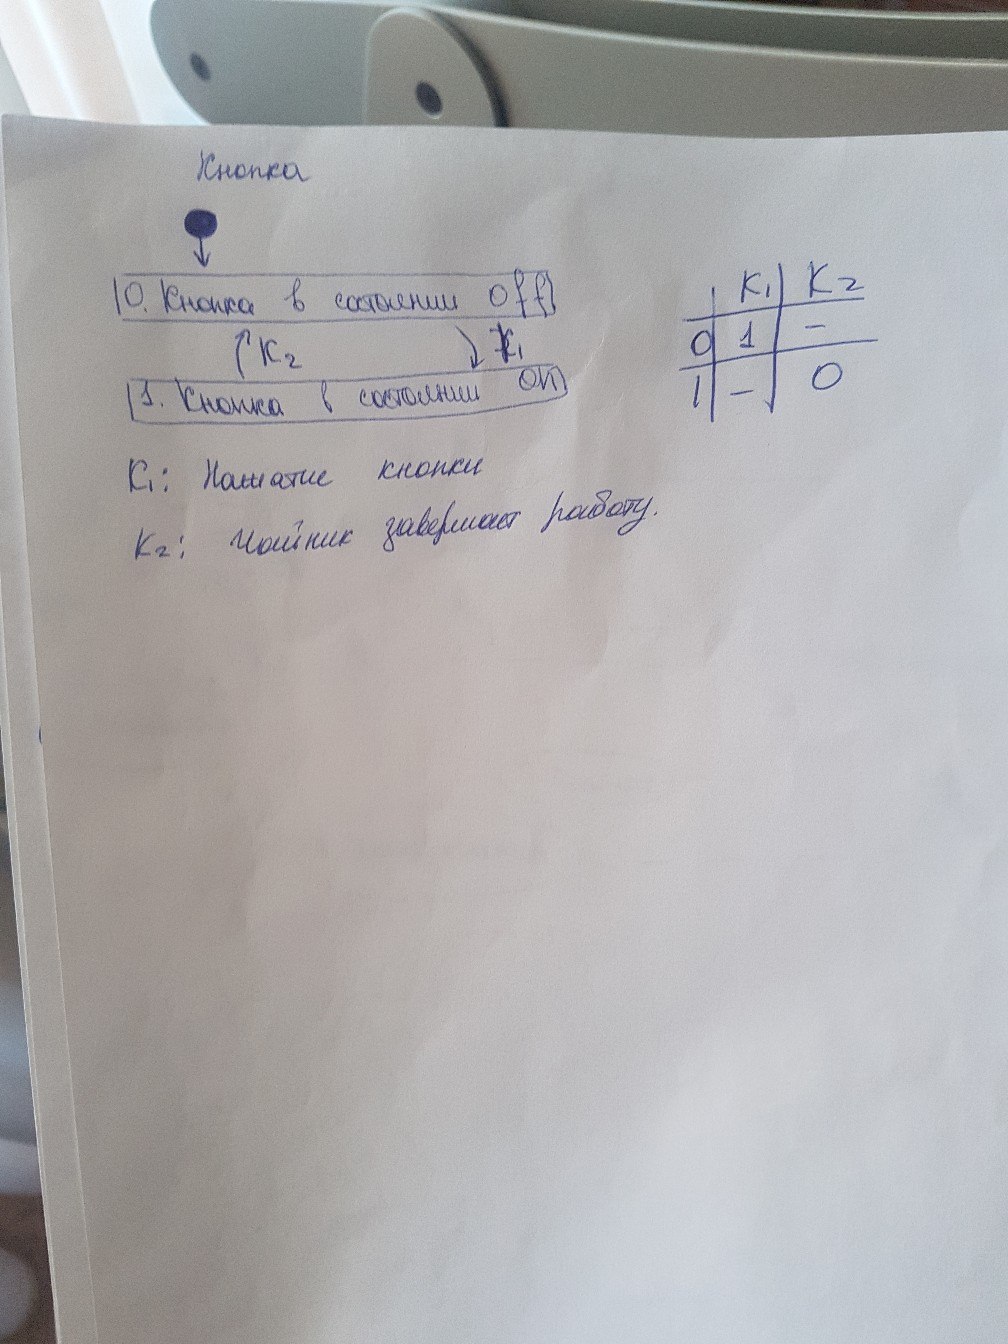 Кнопка
0. Кнопка в состоянии Off
K2 K1
1. Кнопка в состоянии ON
K1 K2
0 1 -
1 - 0
K1: Нажатие кнопки
K2: Чайник завершает работу.